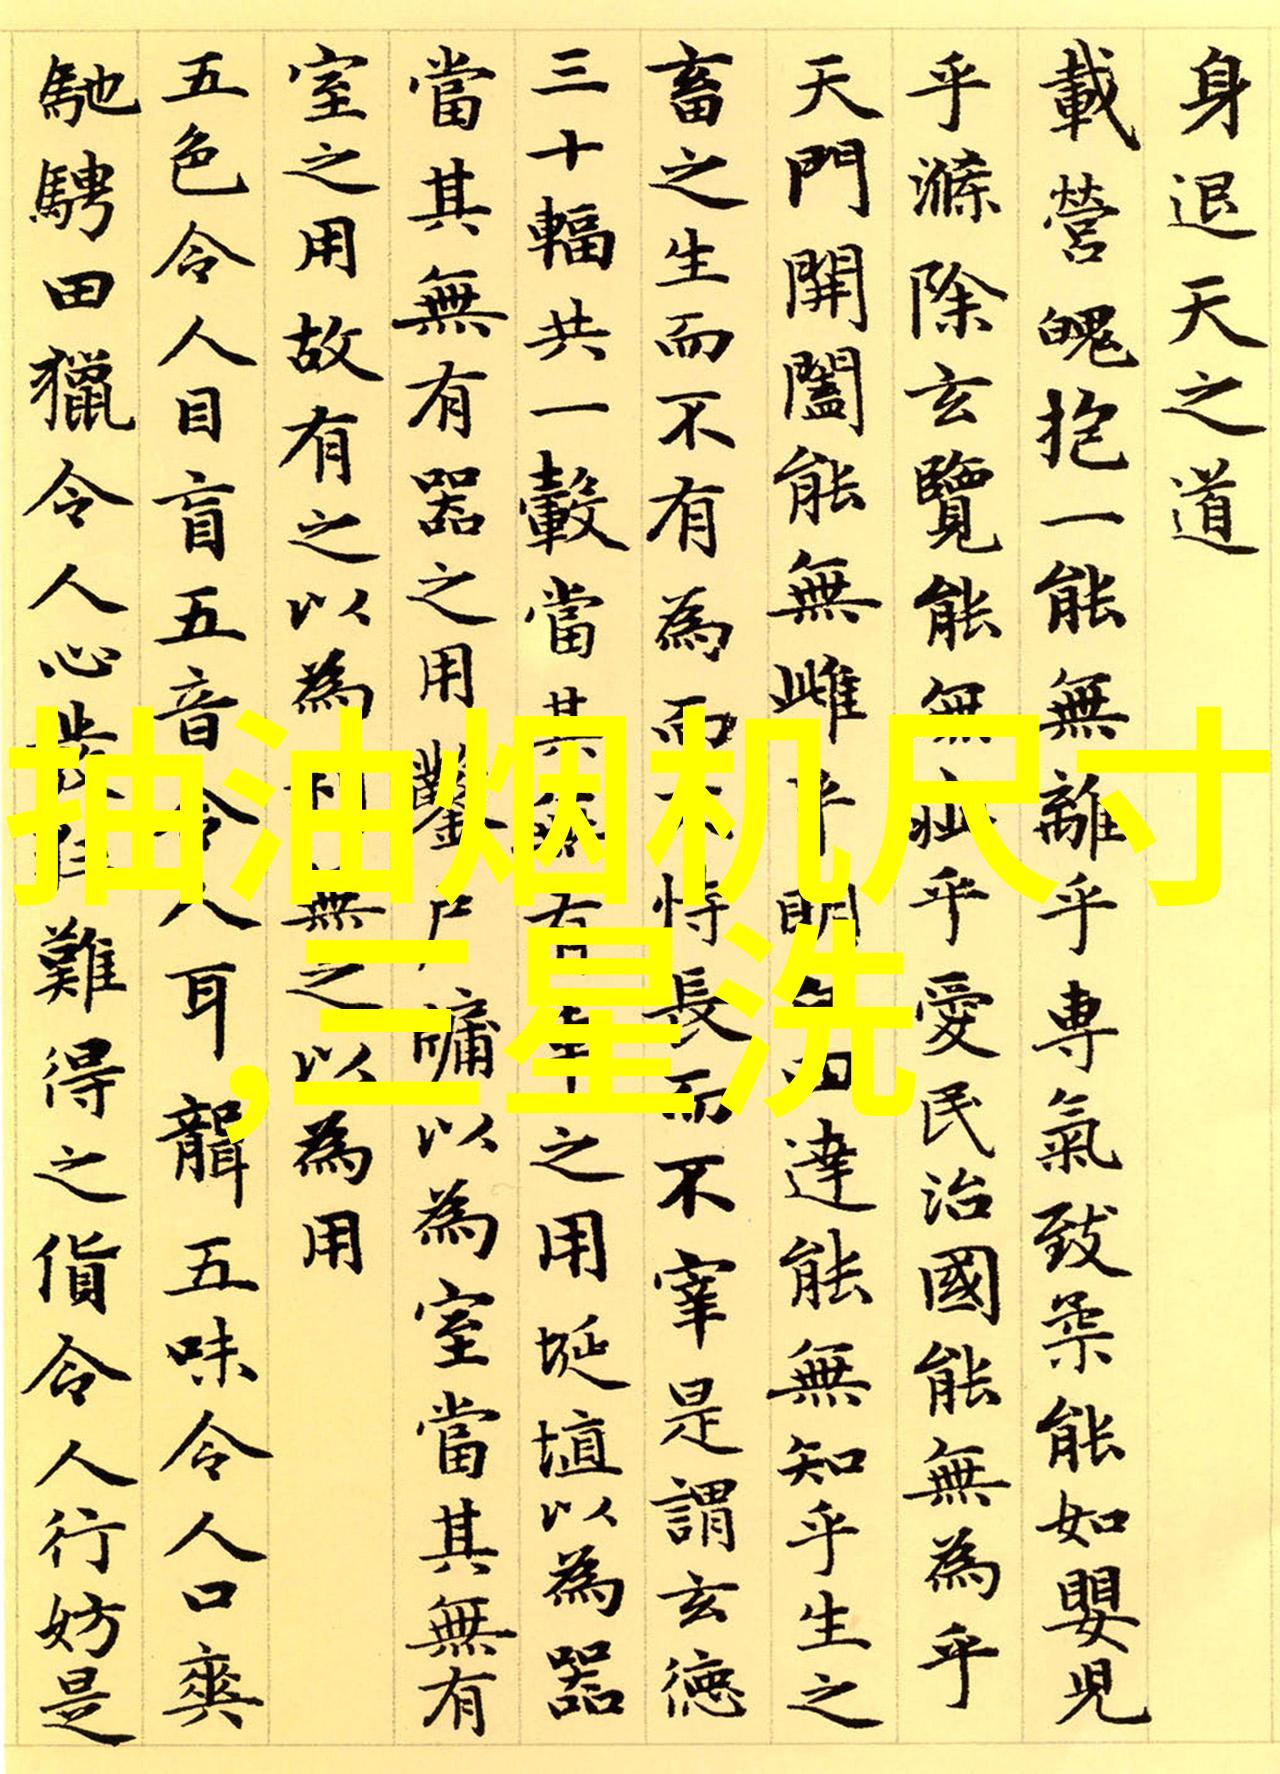 身退天之道
載營魄抱一能無離乎専氣致柔能如嬰児
乎滌除玄覽能無疵乎愛民治國能無為乎
天門開闔能無雌乎明白四達能無知乎生之
畜之生而不有為而不恃長而不宰是謂玄德
三十輻共一轂當其無有車之用埏埴以為器
當其無有器之用鑿戶牖以為室當其無有
室之用故有之以為利無之以為用
五色令人目盲五音令人耳聾五味令人口爽
馳騁田獵令人心發狂難得之貨令人行妨是
抽油烟机尺寸
,三星洗